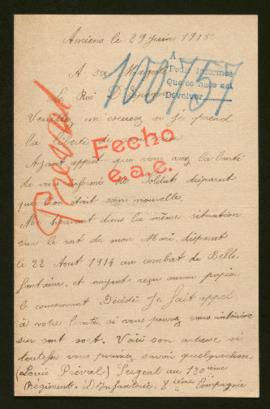 Amiens le 29 Juin 1915
A sa Majesté
Le Roi D'Espagne
100757
Veuillez m'excusez si je prend
la liberté de
Fecho
e.a.c.
Ayant appris que vous avez la bonté
de vous informé des Soldats disparut
que l'on était sans nouvelle.
Me trouvant dans la même situation
sur le sort de mon Mari, disparut
le 22 Aout 1914 au combat de Belle
fontaine, et n'ayant reçu aucun papier
le concernant Décédé Je fait appel
à votre bonté si vous pouvez vous intéressé
sur son sort. Voici son adresse si
toutefois vous pouviez savoir quelquechose
(Louis Préval) Sergent au 120 ième
Régiment D'Infanterie, 8 ième Compagnie
Préval